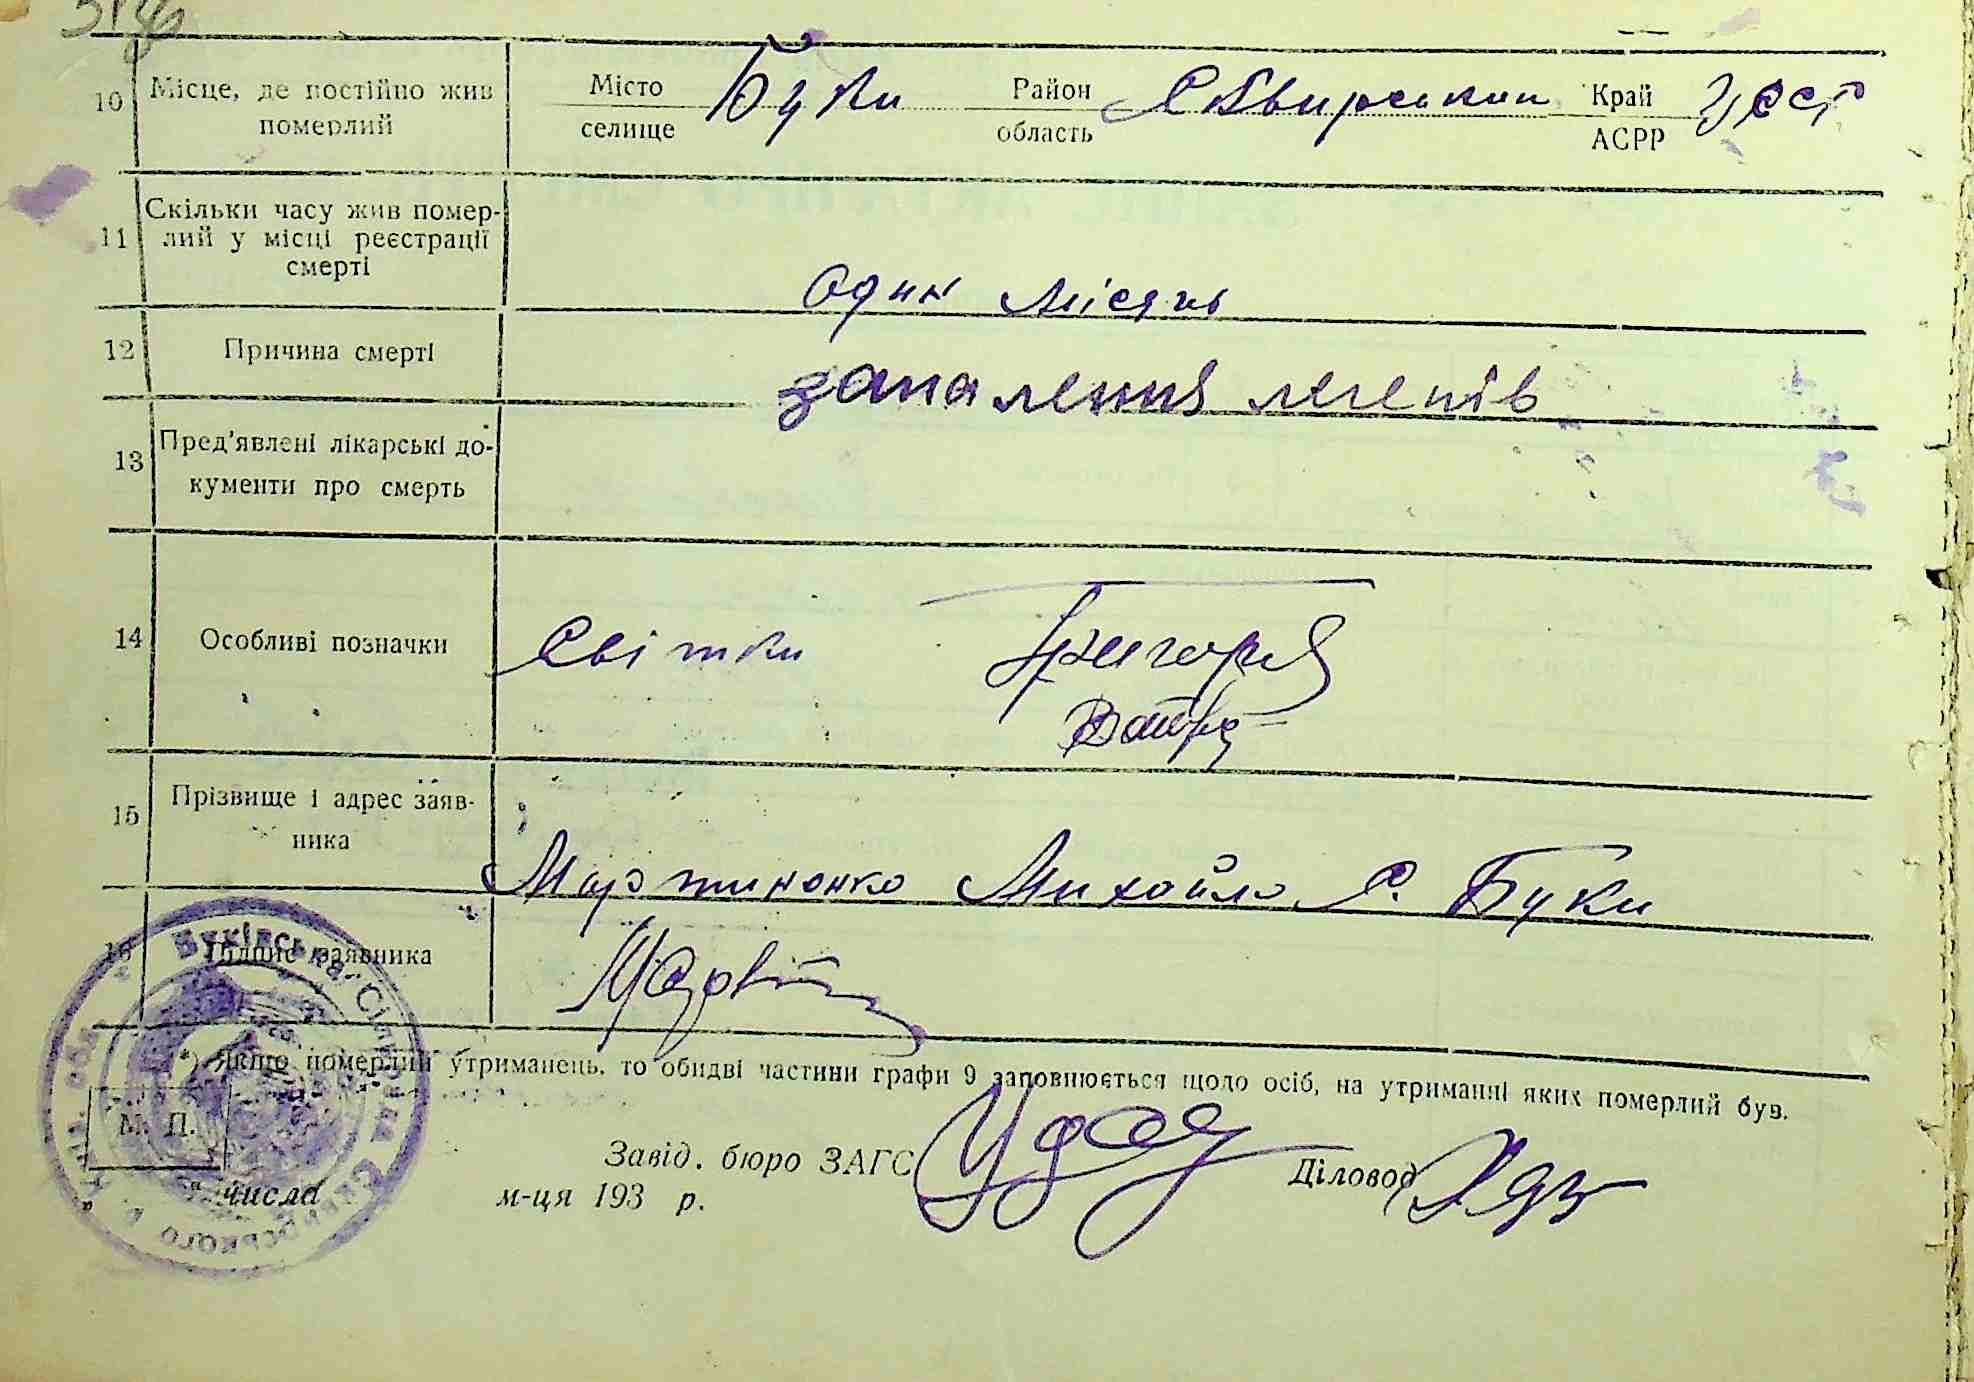 10 Місце, де постійно жив Місто Буки Район Сквирський Край УССР
померлий селище область АСРР
11 Скільки часу жив помер-
лий у місці реєстрації
смерті
один місяць
12 Причина смерті
запалення легенів
13 Пред'явлені лікарські до-
кументи про смерть
14 Особливі позначки Свідки
15 Прізвище і адрес заяв-
ника
Мартиненко Михайло с. Буки
16 Підпис заявника
*) Якщо померлий утриманець, то обидві частини графи 9 заповнюється щодо осіб, на утриманні яких померлий був.
М. П.
Завід. бюро ЗАГС Діловод
" числа м-ця 193 р.
Буківська Сільська Рада Сквирського р. Київ. обл.